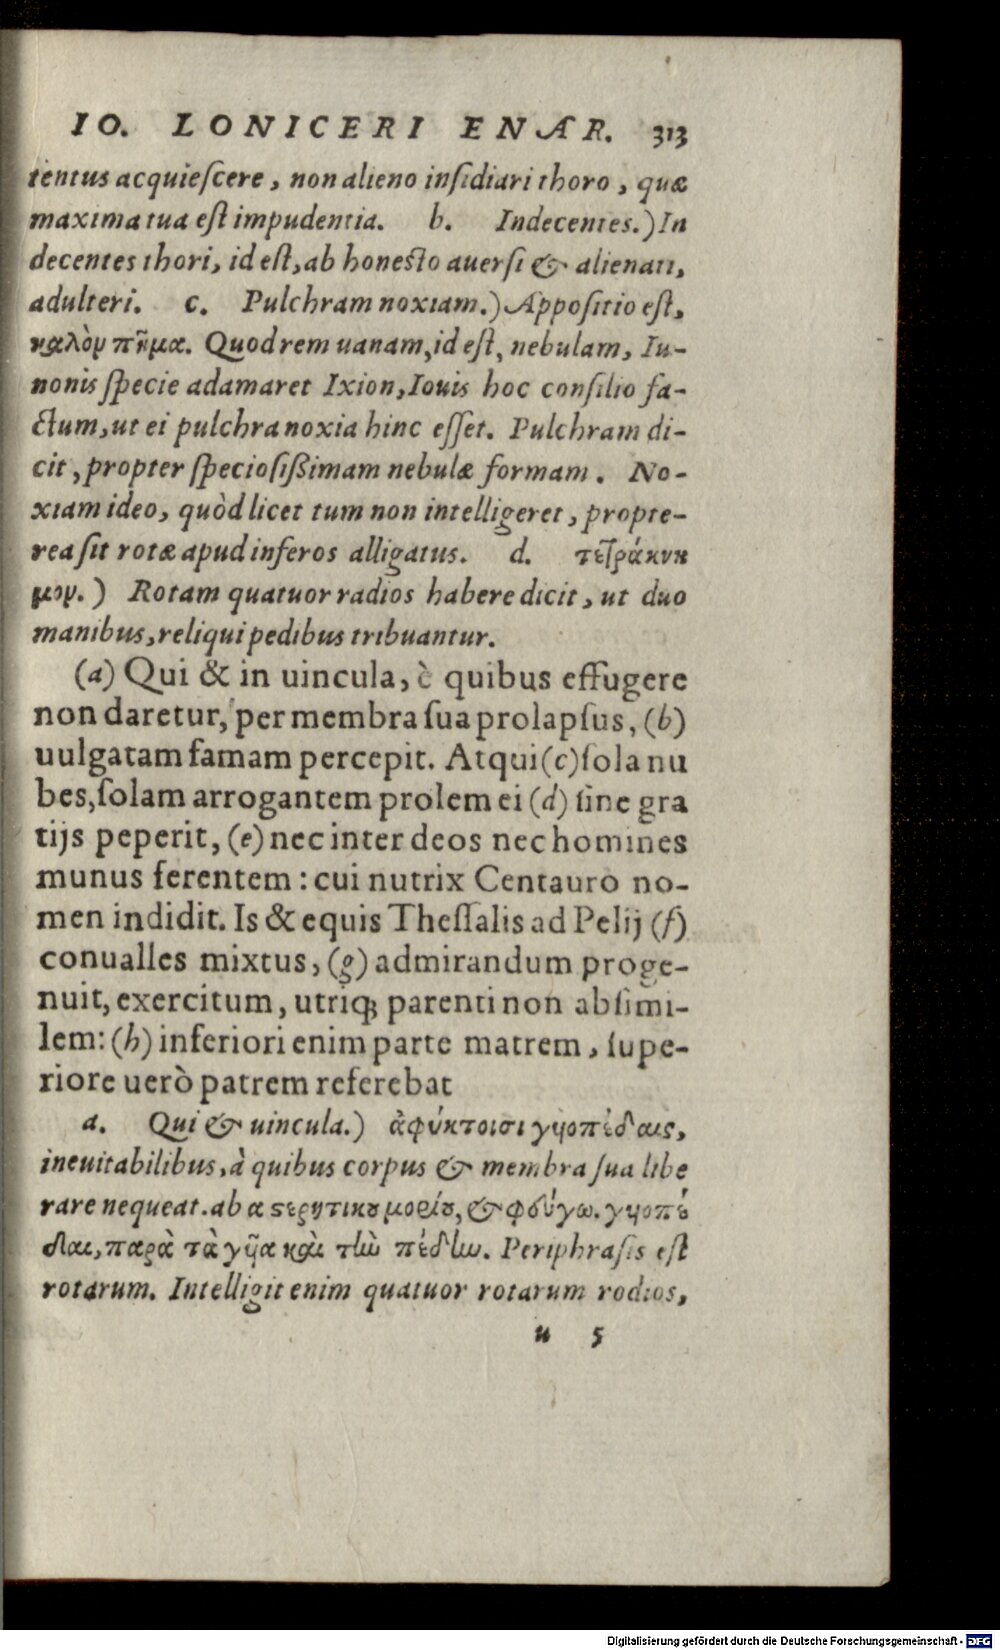 IO. LONICERI ENAR. 313
tentus acquiescere, non alieno insidiari thoro, quæ
maxima tua est impudentia. b. Indecentes.) In
decentes thori, id est, ab honesto auersi & alienati,
adulteri. c. Pulchram noxiam.) Appositio est,
καλὸν πῆμα. Quod rem uanam, id est, nebulam, Iu-
nonis specie adamaret Ixion, Iouis hoc consilio fa-
ctum, ut ei pulchra noxia hinc esset. Pulchram di-
cit, propter speciosißimam nebulæ formam. No-
xiam ideo, quòd licet tum non intelligeret, propte-
rea sit rotæ apud inferos alligatus. d. τετράκνκ
μον.) Rotam quatuor radios habere dicit, ut duo
manibus, reliqui pedibus tribuantur.
(a) Qui & in uincula, è quibus effugere
non daretur, per membra sua prolapsus, (b)
uulgatam famam percepit. Atqui (c) sola nu
bes, solam arrogantem prolem ei (d) sine gra
tijs peperit, (e) nec inter deos nec homines
munus ferentem: cui nutrix Centauro no-
men indidit. Is & equis Thessalis ad Pelij (f)
conualles mixtus, (g) admirandum proge-
nuit, exercitum, utriq; parenti non absimi-
lem: (h) inferiori enim parte matrem, supe-
riore uerò patrem referebat
a. Qui & uincula.) ἀφύκτοισι γυιοπέδαις,
ineuitabilibus, à quibus corpus & membra sua libe
rare nequeat. ab α στερητικοῦ μορίου, & φεύγω. γυιοπέ
δαι, παρὰ τὰ γῆα καὶ τὴν πέδην. Periphrasis est
rotarum. Intelligit enim quatuor rotarum rodios,
u 5
Digitalisierung gefördert durch die Deutsche Forschungsgemeinschaft - DFG